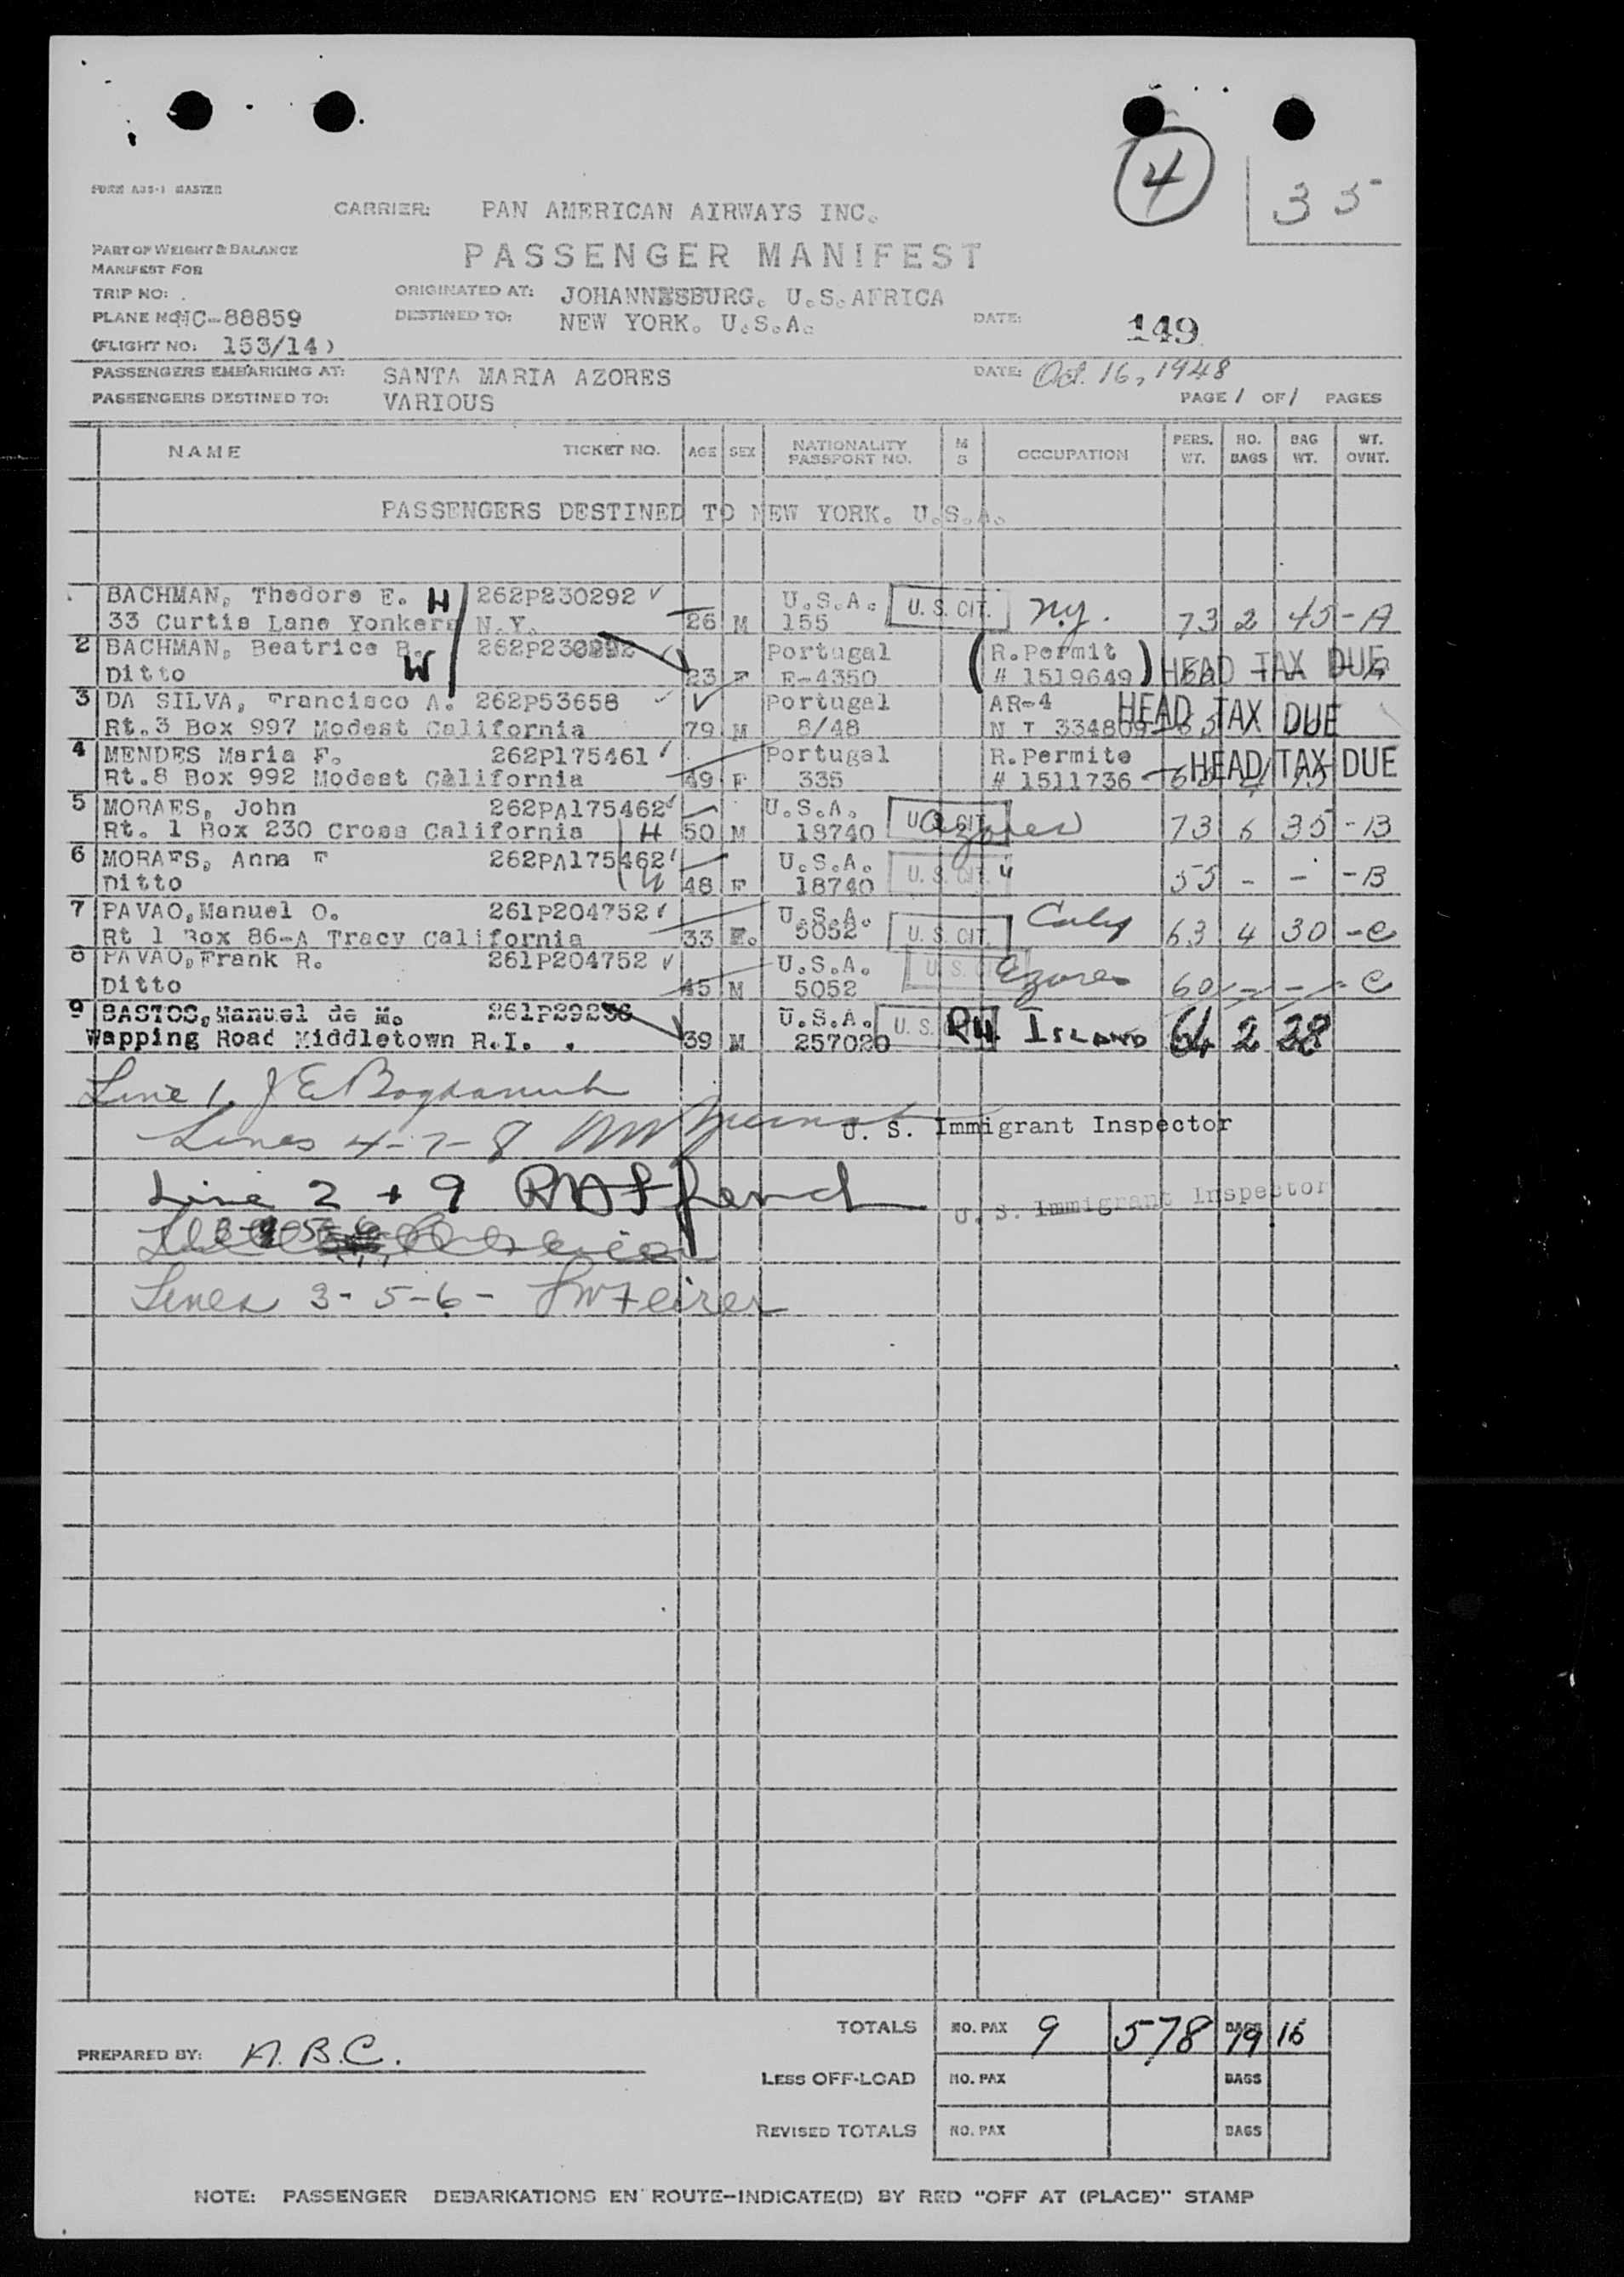 4
35
FORM A35-1 MASTER
CARRIER: PAN AMERICAN AIRWAYS INC.
PASSENGER MANIFEST
PART OF WEIGHT & BALANCE
MANIFEST FOR
TRIP NO:
ORIGINATED AT: JOHANNESBURG. U.S.AFRICA
PLANE NO: NC-88859
DESTINED TO: NEW YORK. U.S.A.
DATE: 149
(FLIGHT NO: 153/14)
PASSENGERS EMBARKING AT: SANTA MARIA AZORES
DATE: Oct. 16, 1948
PASSENGERS DESTINED TO: VARIOUS
PAGE 1 OF 1 PAGES
NAME TICKET NO. AGE SEX NATIONALITY PASSPORT NO. M S OCCUPATION PERS. WT. NO. BAGS BAG WT. WT. OVNT.
PASSENGERS DESTINED TO NEW YORK. U.S.A.
BACHMAN, Thedore E. H 262P230292 U.S.A. U. S. CIT. N.y.
33 Curtis Lane Yonkers N.Y. 26 M 155 73 2 45 -A
2 BACHMAN, Beatrice B. 262P230292 Portugal R.Permit HEAD TAX DUE
Ditto W 23 F E-4350 # 1519649
3 DA SILVA, Francisco A. 262P53658 Portugal AR-4 HEAD TAX DUE
Rt.3 Box 997 Modest California 79 M 8/48 N I 334809
4 MENDES Maria F. 262P175461 Portugal R.Permite HEAD TAX DUE
Rt.8 Box 992 Modest California 49 F 335 # 1511736
5 MORAES, John 262PA175462 U.S.A. U. S. CIT. Azores
Rt. 1 Box 230 Cross California H 50 M 18740 73 6 35 -B
6 MORAES, Anna F 262PA175462 U.S.A. U. S. CIT. "
Ditto W 48 F 18740 55 - - -B
7 PAVAO, Manuel O. 261P204752 U.S.A. U. S. CIT. Calif
Rt 1 Box 86-A Tracy California 33 5052 63 4 30 -C
8 PAVAO, Frank R. 261P204752 U.S.A. U. S. CIT. Azores
Ditto 45 M 5052 60 - - - C
9 BASTOS, Manuel de M. U.S.A. U. S. RH ISLAND
Wapping Road Middletown R.I. 39 M 257020 64 2 28
Line 1.
Lines 4-7-8 U. S. Immigrant Inspector
Line 2 + 9
U. S. Immigrant Inspector
Lines 3-5-6-
TOTALS NO. PAX 9 578 BAGS 19 15
PREPARED BY: A.B.C.
LESS OFF-LOAD NO. PAX BAGS
REVISED TOTALS NO. PAX BAGS
NOTE: PASSENGER DEBARKATIONS EN ROUTE-INDICATE(D) BY RED "OFF AT (PLACE)" STAMP